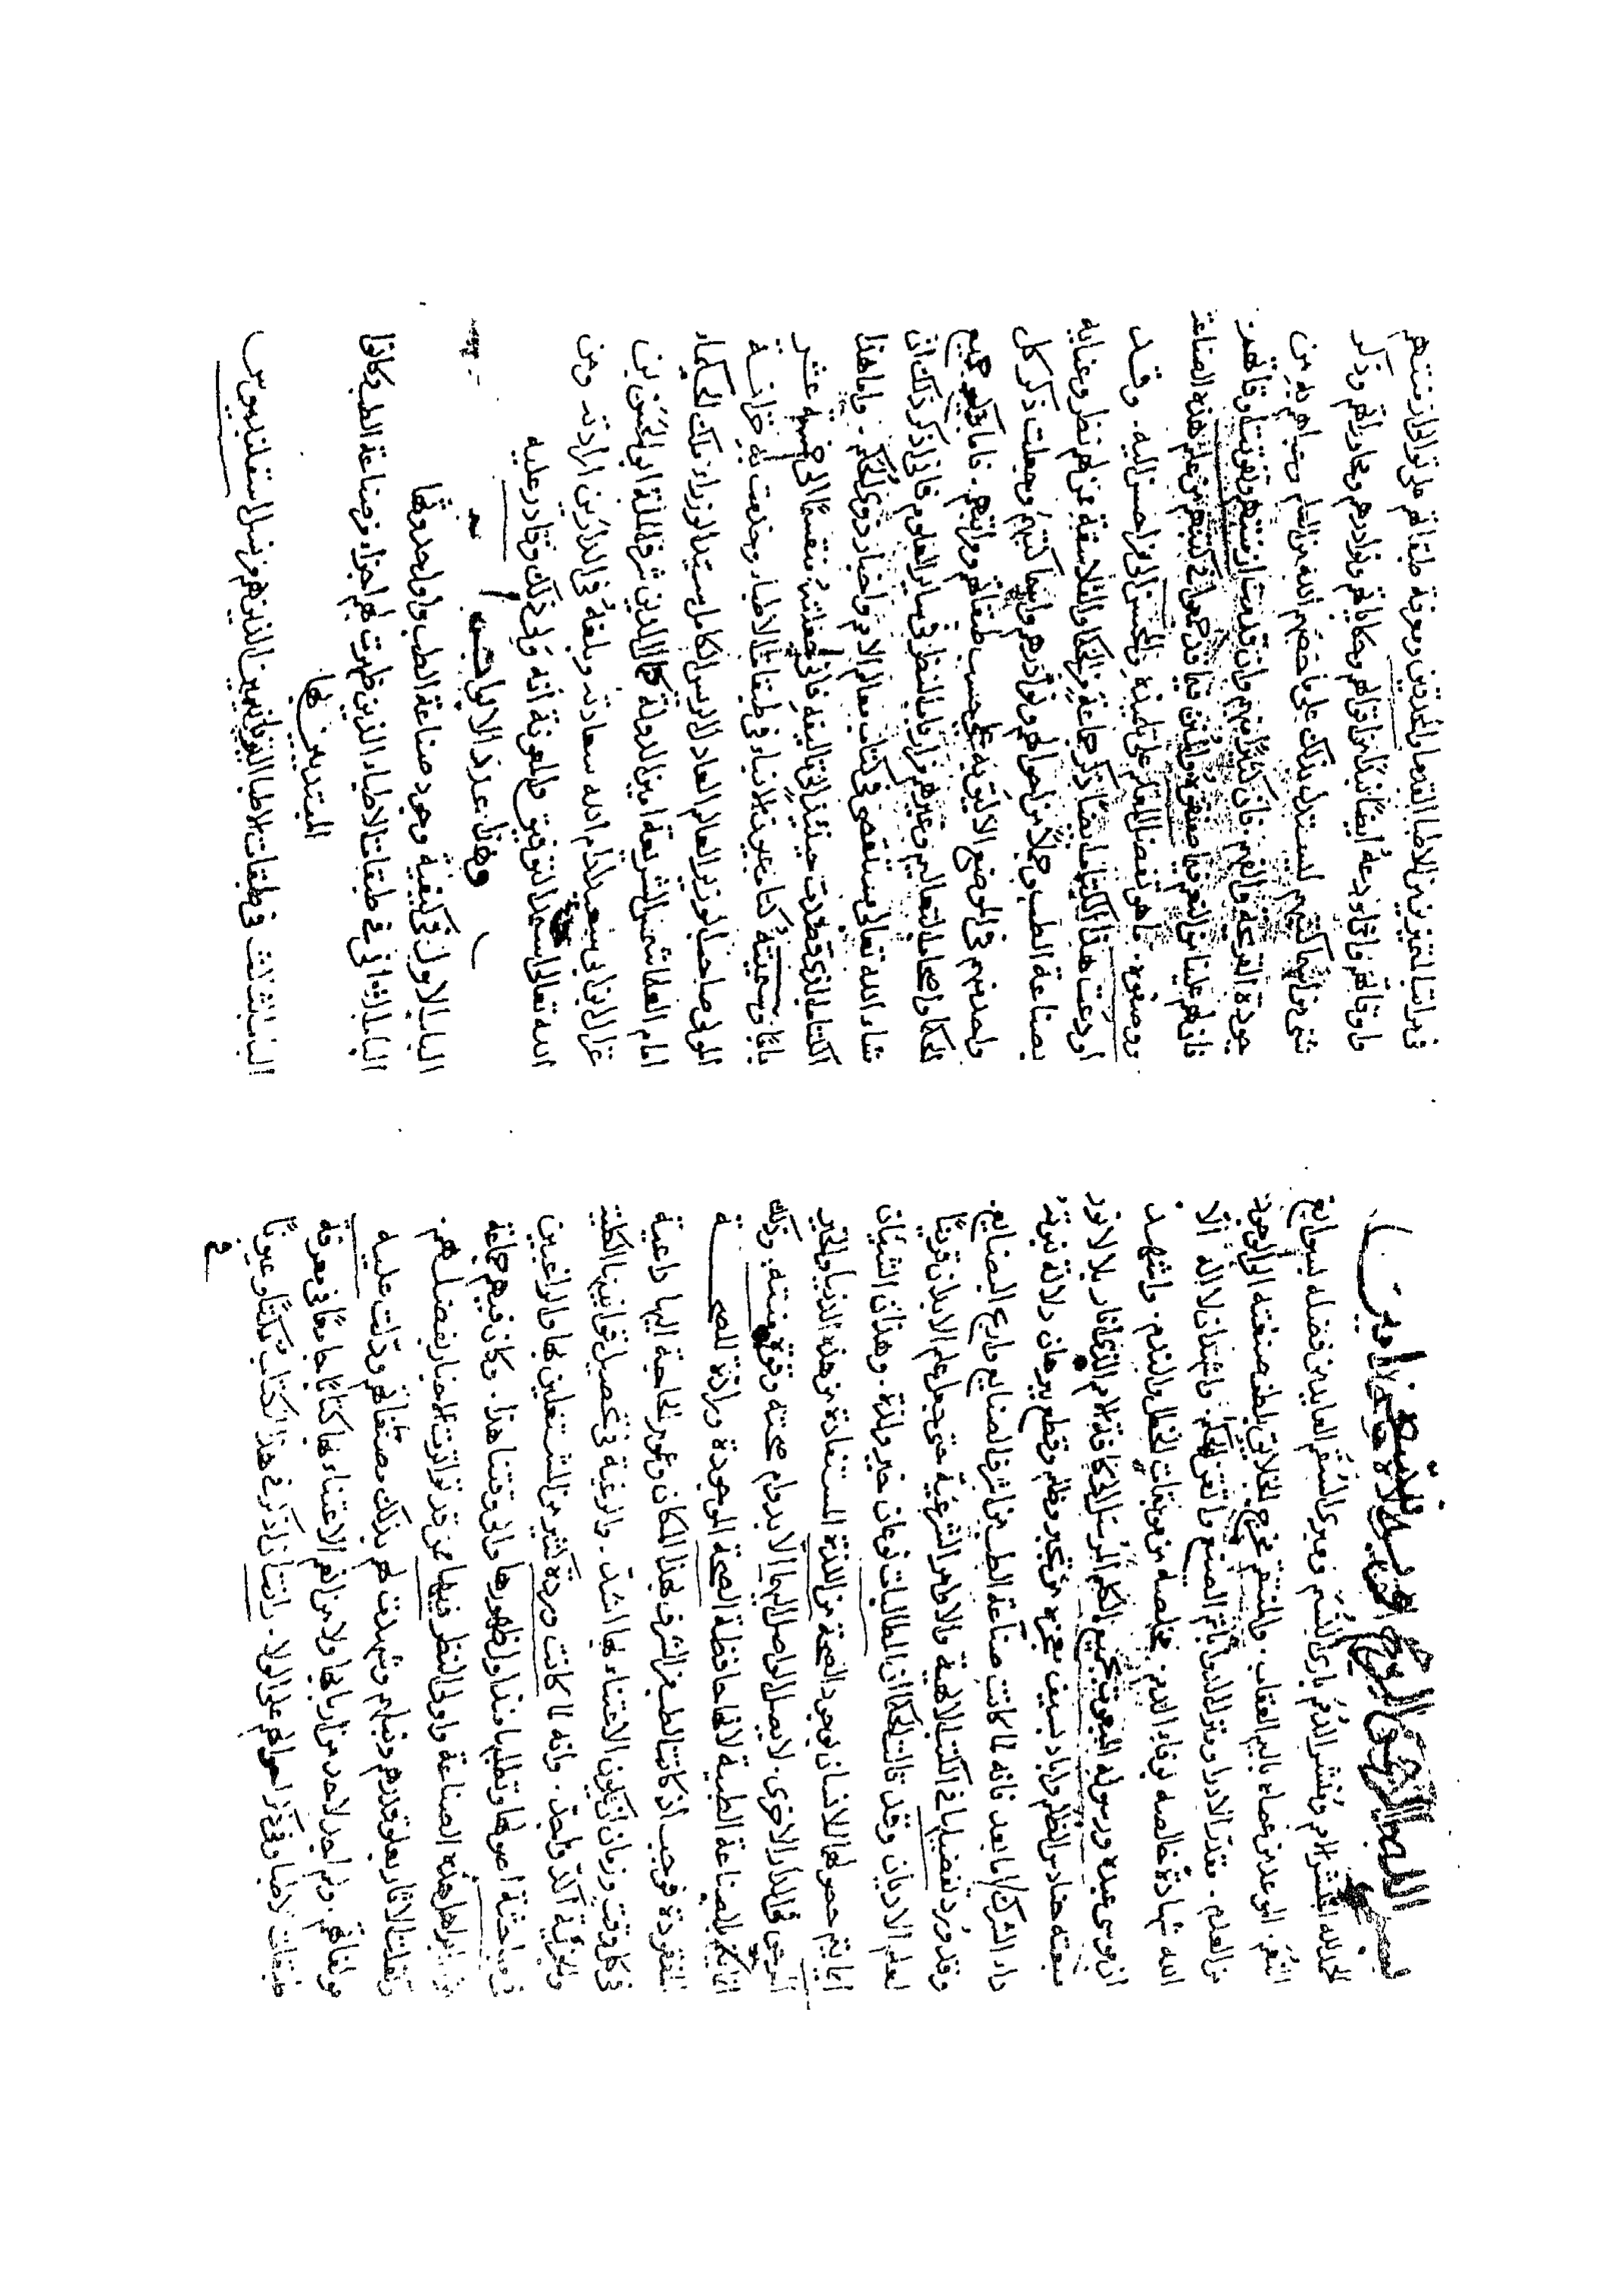 بسم الله الرحمن الرحيم
الحمد لله ناشر الامم ومنشر الرمم باري النسم ومبري السقم العايد بمن فضله بسوابغ
النعم. الموعد من عصاه باليم العقاب. والمنتقم مخرج الخلايق بلطف صنعته الى الوجود
من العدم. مقدر الادوا ومنزل الدوا باتم الصنع واتقن الحكم. واشهد ان لا اله الا
الله شهادة خالصه بوفاء الذمم. مخلصه من موبقات الخطل والندم. واشهد
ان موسى عبده ورسوله المبعوث بجميع الكلم المرسل الى كافة الامم الذي انار بلالا نور
مبعثه حنادس الظلم واباد بسيف معجزه من تجبر وظلم وقطع ببرهان دلالة نبوته
داء الشرك/ اما بعد فانه لما كانت صناعة الطب من اشرف الصنايع واربح البضايع
وقد ورد تفضيلها في الكتب الالهية والاوامر الشرعية حتى جعل علم الابدان قرينا
لعلم الاديان وقد قالت الحكما ان المطالب نوعان خير ولذة. وهذان الشيئان
انما يتم حصولهما للانسان بوجود الصحة من اللذة المستفادة من هذه الدنيا والخير
المرجى في الدار الاخرى. لا يصل الواصل اليهما الا بدوام صحته وقوة بنيته. وذلك
انما يتم بالصناعة الطبية لانها حافظة الصحة الموجودة ورادة للصحة
المفقودة فوجب اذ كانت الطب من الشرف بهذا المكان وعموم الحاجة اليها داعية
في كل وقت وزمان ان يكون الاعتناء بها اشد. والرغبة في تحصيل قوانينها الكلية
والجزئية آكد واجد. وانه لما كانت وردة كثير من المشتغلين بها والراغبين
في مباحثة اصولها وتطلبها منذ اول ظهورها والى وقتنا هذا. وكان فيهم جماعة
من اهل هذه الصناعة واولى النظر فيها من قد تواترت الاخبار بفضلهم
ونقلت الاثار بعلو قدرهم ونبلهم وشهدت لهم بذلك مصنفاتهم ودلت عليه
مولفاتهم. ولم اجد لاحد من اربابها ولا من انعم الاعتناء بها كتابا جامعا في معرفة
طبقات الاطبا وفي ذكر احوالهم على الولا. رايت ان اذكر في هذا الكتاب نكتا وعيونا
في
في مراتب المتميزين من الاطبا القدما والمحدثين ومعرفة طبقاتهم على توالي ازمنتهم
واوقاتهم وان اودعه ايضا نبذا من اقوالهم وحكاياتهم ونوادرهم ومحاوراتهم وذكر
شي من اسما كتبهم ليستدل بذلك على ما خصهم الله من العلم وحباهم به من
جودة القريحة والفهم. فان كثيرا منهم وان قدمت ازمنتهم وتفوتت اوقاتهم
فان لهم علينا من النعم فيما صنفوه والمنن فيما قد جمعوا في كتبهم من علم هذه الصناعة
ووصفوه. ما هو تفضل المعلم على تلميذه والمحسن الى من احسن اليه. وقد
اودعت هذا الكتاب ايضا ذكر جماعة من الحكما والفلاسفة ممن لهم نظر وعناية
بصناعة الطب وجملا من احوالهم ونوادرهم واسما كتبهم وجعلت ذكر كل
واحد منهم في الموضع الاليق به على حسب طبقاتهم ومراتبهم. فاما ذكر جميع
الحكما واصحاب التعاليم وغيرهم من ارباب النظر في ساير العلوم فاني اذكر ذلك ان
شاء الله تعالى مستقصى في كتاب معالم الامم واخبار ذوي الحكم. واما هذا
الكتاب الذي قصدت حينئذ الى تاليفه فاني جعلته منقسما الى خمسة عشر
بابا وسميته كتاب عيون الانباء في طبقات الاطباء وخدمت به خزانة
المولى صاحب الوزير العالم العادل الرئيس الكامل سيد الوزراء ملك الحكماء
امام العلما شمس الشريعة امين الدولة كمال الدين شرف الملة ابو الحسن بن
غزال ابن ابي سعيد ادام الله سعادته وبلغه في الدارين ارادته ومن
الله تعالى استمد التوفيق والمعونة انه ولي ذلك وقادر عليه
وهذا عدد الابواب
الباب الاول في كيفية وجود صناعة الطب واول حدوثها
الباب الثاني في طبقات الاطباء الذين ظهرت لهم اجزاء من صناعة الطب وكانوا
المبتدين بها
الباب الثالث في طبقات الاطبا اليونانيين الذين هم من نسل اسقلبديوس